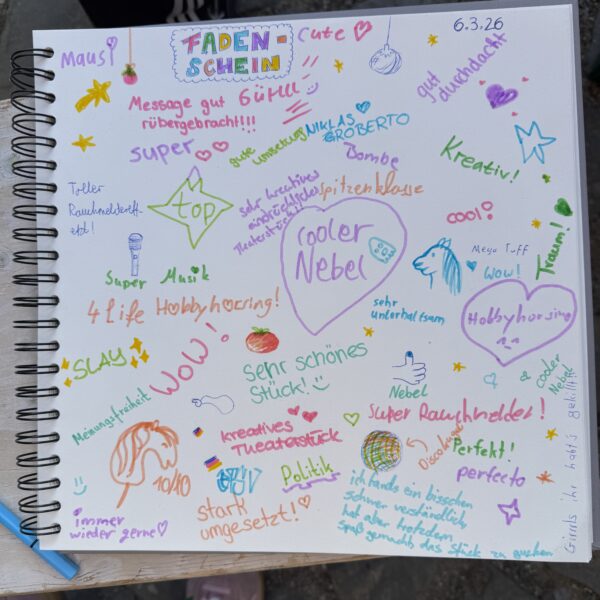 Maus!
FADEN-
SCHEIN
Cute
6.3.26
gut
durchdacht
Message gut
rübergebracht!!!
super
gute
umsetzung
NIKLAS
GROBERTO
Bombe
Kreativ!
Toller
top
sehr kreatives
Theaterstück!!
Spitzenklasse
cool!
Traum!
cooler
Nebel
Mega Tuff
Wow!
Super Musik
4 Life Hobbyhorsing!
sehr
unterhaltsam
Hobbyhorsing
SLAY
WOW!
Sehr schönes
Stück!
Nebel
cooler
Nebel
Meinungsfreiheit
kreatives
Theaterstück
Super Rauchmelder!
Discokugel
Perfekt!
perfecto
10/10
Politik
stark
umgesetzt!
immer
wieder gerne
ich fands ein bisschen
schwer verständlich
hat aber trotzdem
spaß gemacht das Stück zu gucken
Girrrls ihr habt's gekillt!